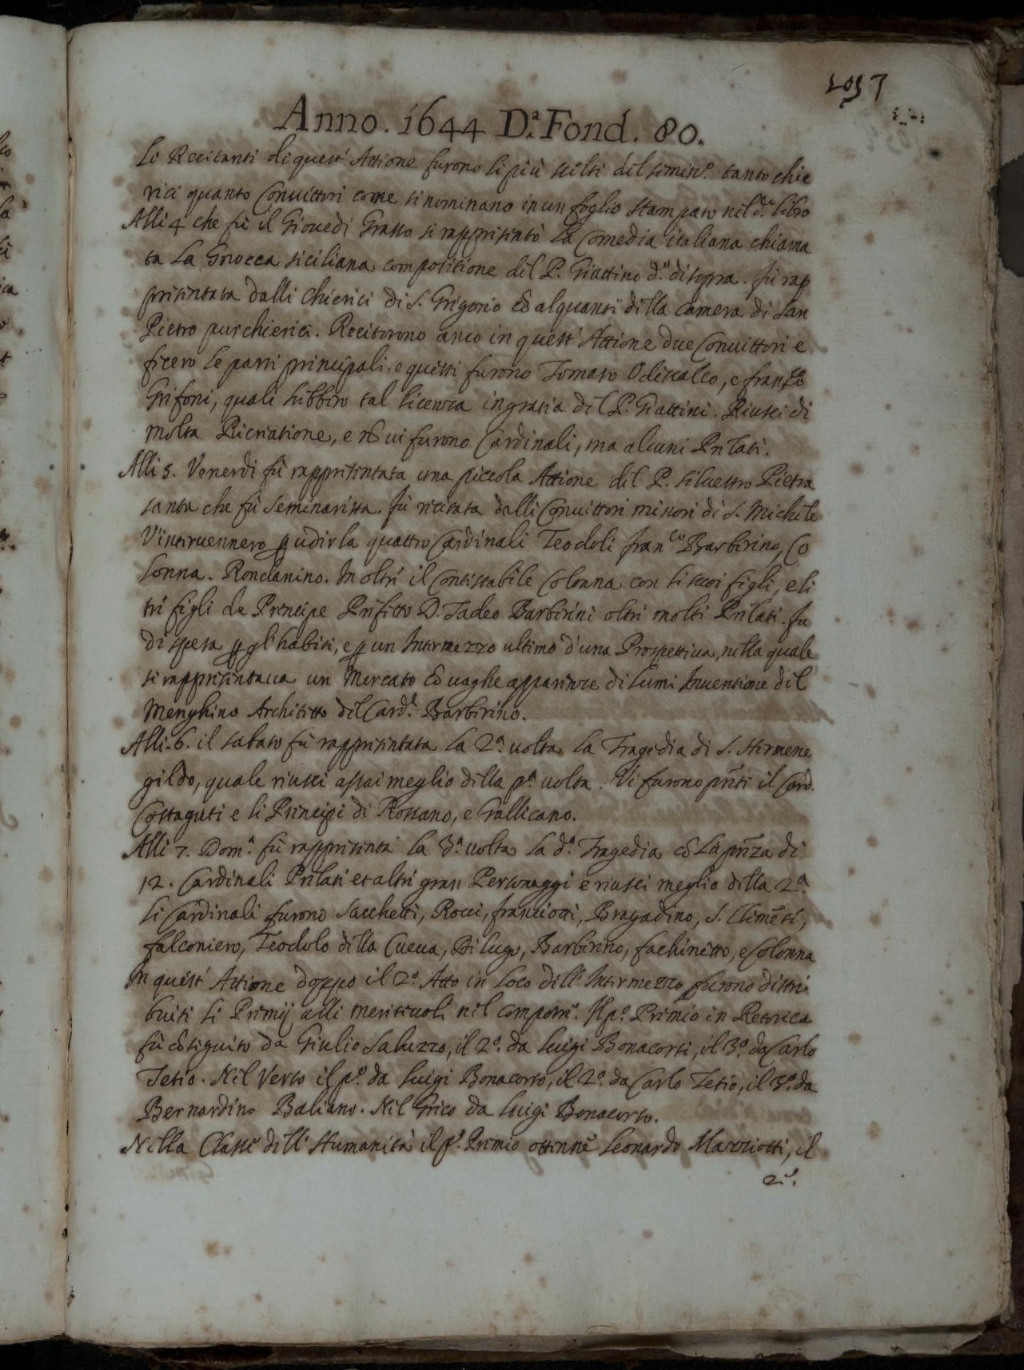 1057
Anno. 1644 D.ª Fond. 80.
Li Recitanti di quest' Attione furono li più scelti del semin.º tanto chie
rici quanto Convittori come si nominano in un foglio stampato nel d.º libro
Alli 4 che fù il Giovedi Grasso si rappresentò la Comedia italiana chiama
ta La siciliana compositione del P. Giattino d.º di sopra. Fu rap
presentata dalli Chierici di S. Grigorio et alquanti della Camera di San
Pietro pur chierici. Recitorono anco in quest' Attione due Convittori e
fecero le parti principali, e questi furono Tomaso Odescalco, e Fran.co
Grifoni, quali hebbero tal licenza in gratia del P. Giattini. Riuscì di
molta Ricreatione, e nõ vi furono Cardinali, ma alcuni Prelati.
Alli 5. Venerdi fù rappresentata una piccola Attione del P. Silvestro Pietra
santa che fù seminarista. Fu recitata dalli Convittori minori di S. Michele
V'intervennero p udirla quattro Cardinali Teodoli Fran.co Barberino, Co
lonna. Rondanino. In oltre il Contestabile Colonna con li suoi figli, e li
tre figli de Principe Prefetto D. Tadeo Barberini oltre molti Prelati. Fu
di spesa p gl' habiti, e p un Intermezzo ultimo d'una Prospettiva, nella quale
si rappresentava un Mercato et vaghe apparenze di lumi Inventione del
Menghino Architetto del Card.l Barberino.
Alli. 6. il sabato fù rappresentata la 2.ª volta la Tragedia di S. Hermene
gildo, quale riuscì assai meglio della p.ª volta. Vi furono prñti il Card.
Costaguti e li Principi di Rossano, e Gallicano.
Alli 7. Dom.ª fù rappresentata la 3.ª volta la d.ª Tragedia cõ la prñza di
12. Cardinali Prelati et altri gran Personaggi e riuscì meglio della 2.ª
Li Cardinali furono Sacchetti, Rocci, Franciotti, Bragadino, S. Clemẽte,
Falconiero, Teodolo della Cueva, Di Lugo, Barberino, Fachinetto, e Colonna
In quest' Attione doppo il 2.º Atto in loco dell' Intermezzo furono distri
buiti li Premij alli meritevoli nel comporre. Il p.º Premio in Retorica
fù cõseguito da Giulio Saluzzo, il 2.º da Luigi Bonacorsi, il 3.º da Carlo
Tetio. Nel Verso il p.º da Luigi Bonacorso, il 2.º da Carlo Tetio, il 3.º da
Bernardino Baliano. Nel Greco da Luigi Bonacorso.
Nella Classe dell' Humanità il p.º Premio ottenne Leonardo Marziotti, il
2.º